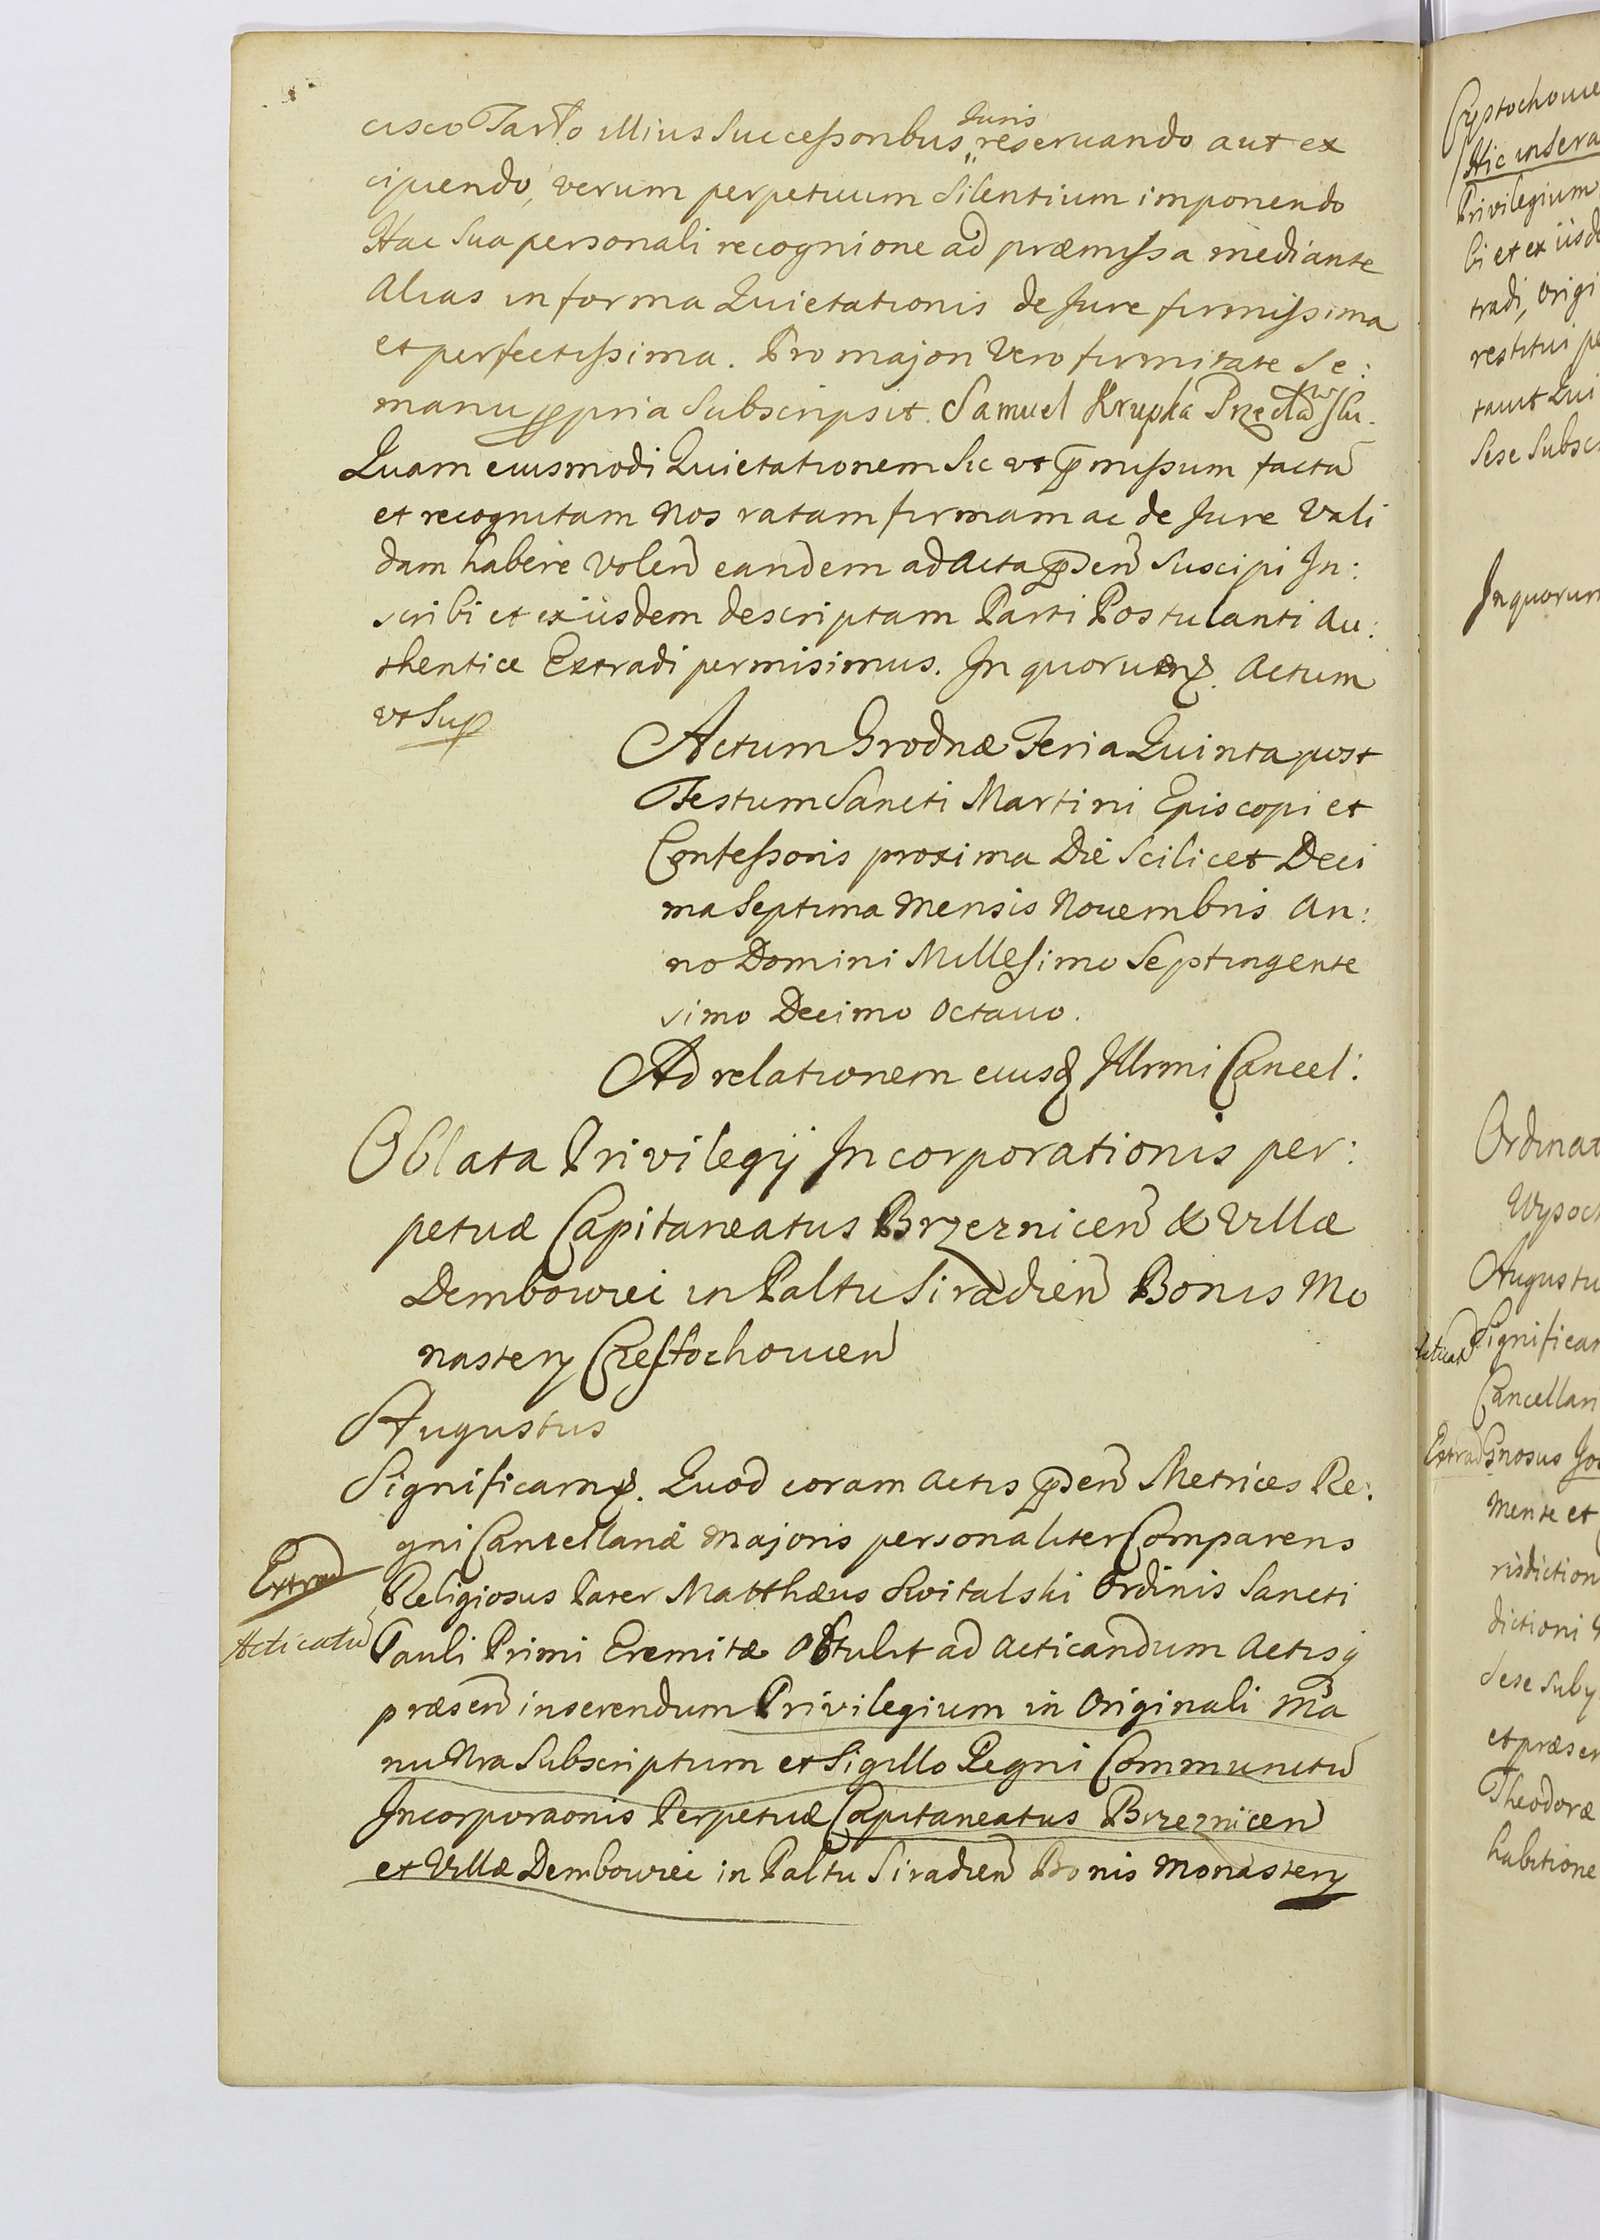 cisco Tarło illius Successoribus Juris reservando aut ex
cipiendo, verum perpetuum Silentium imponendo
Hac Sua personali recognione ad præmissa mediante
Alias in forma Quietationis de Jure firmissima
et perfectissima. Pro majori Vero firmitate Se:
manu ppria Subscripsit. Samuel Krupka Przecławski.
Quam eiusmodi Quietationem Sic ut pmissum factā
et recognitam Nos ratam firmam ac de Jure Vali
dam habere Volen eandem ad Acta pden Suscipi In:
scribi et ex iisdem descriptam Parti Postulanti Au:
thentice Extradi permisimus. In quorum. Actum
ut Sup
Actum Grodnæ Feria Quinta post
Festum Sancti Martini Episcopi et
Confessoris proxima Die Scilicet Deci
ma Septima Mensis Novembris An:
no Domini Millesimo Septingente
simo Decimo Octavo.
Ad relationem eiusd Illrmi Cancel:
Oblata Privilegij Incorporationis per:
petuæ Capitaneatus Brzeznicen & Villæ
Dembowiei in Paltu Siradien Bonis Mo
nastery Czestochovien
Augustus
Significam. Quod coram Actis pden Metrices Re:
gni Cancellariæ Majoris personaliter Comparens
Extrad
Religiosus Pater Matthæus Kwitalski Ordinis Sancti
Acticatū
Pauli Primi Eremitæ Obtulit ad Acticandum Actisq
præsen inserendum Privilegium in Originali Ma
nu Nra Subscriptum et Sigillo Regni Communitū
Incorporaonis Perpetuæ Capitaneatus Brzeznicen
et Villæ Dembowiei in Paltu Siradien Bonis Monastery
Hic insera
Privilegium
bi et ex iisde
tradi, origi
restitui pe
Sese Subsc
In quorum
Ordinat
Wysoc
Augustu
Significam
Cancellari
Extrad
Mente et
risdiction
dictioni
sese Suby
et præsen
Theodoræ
habitione